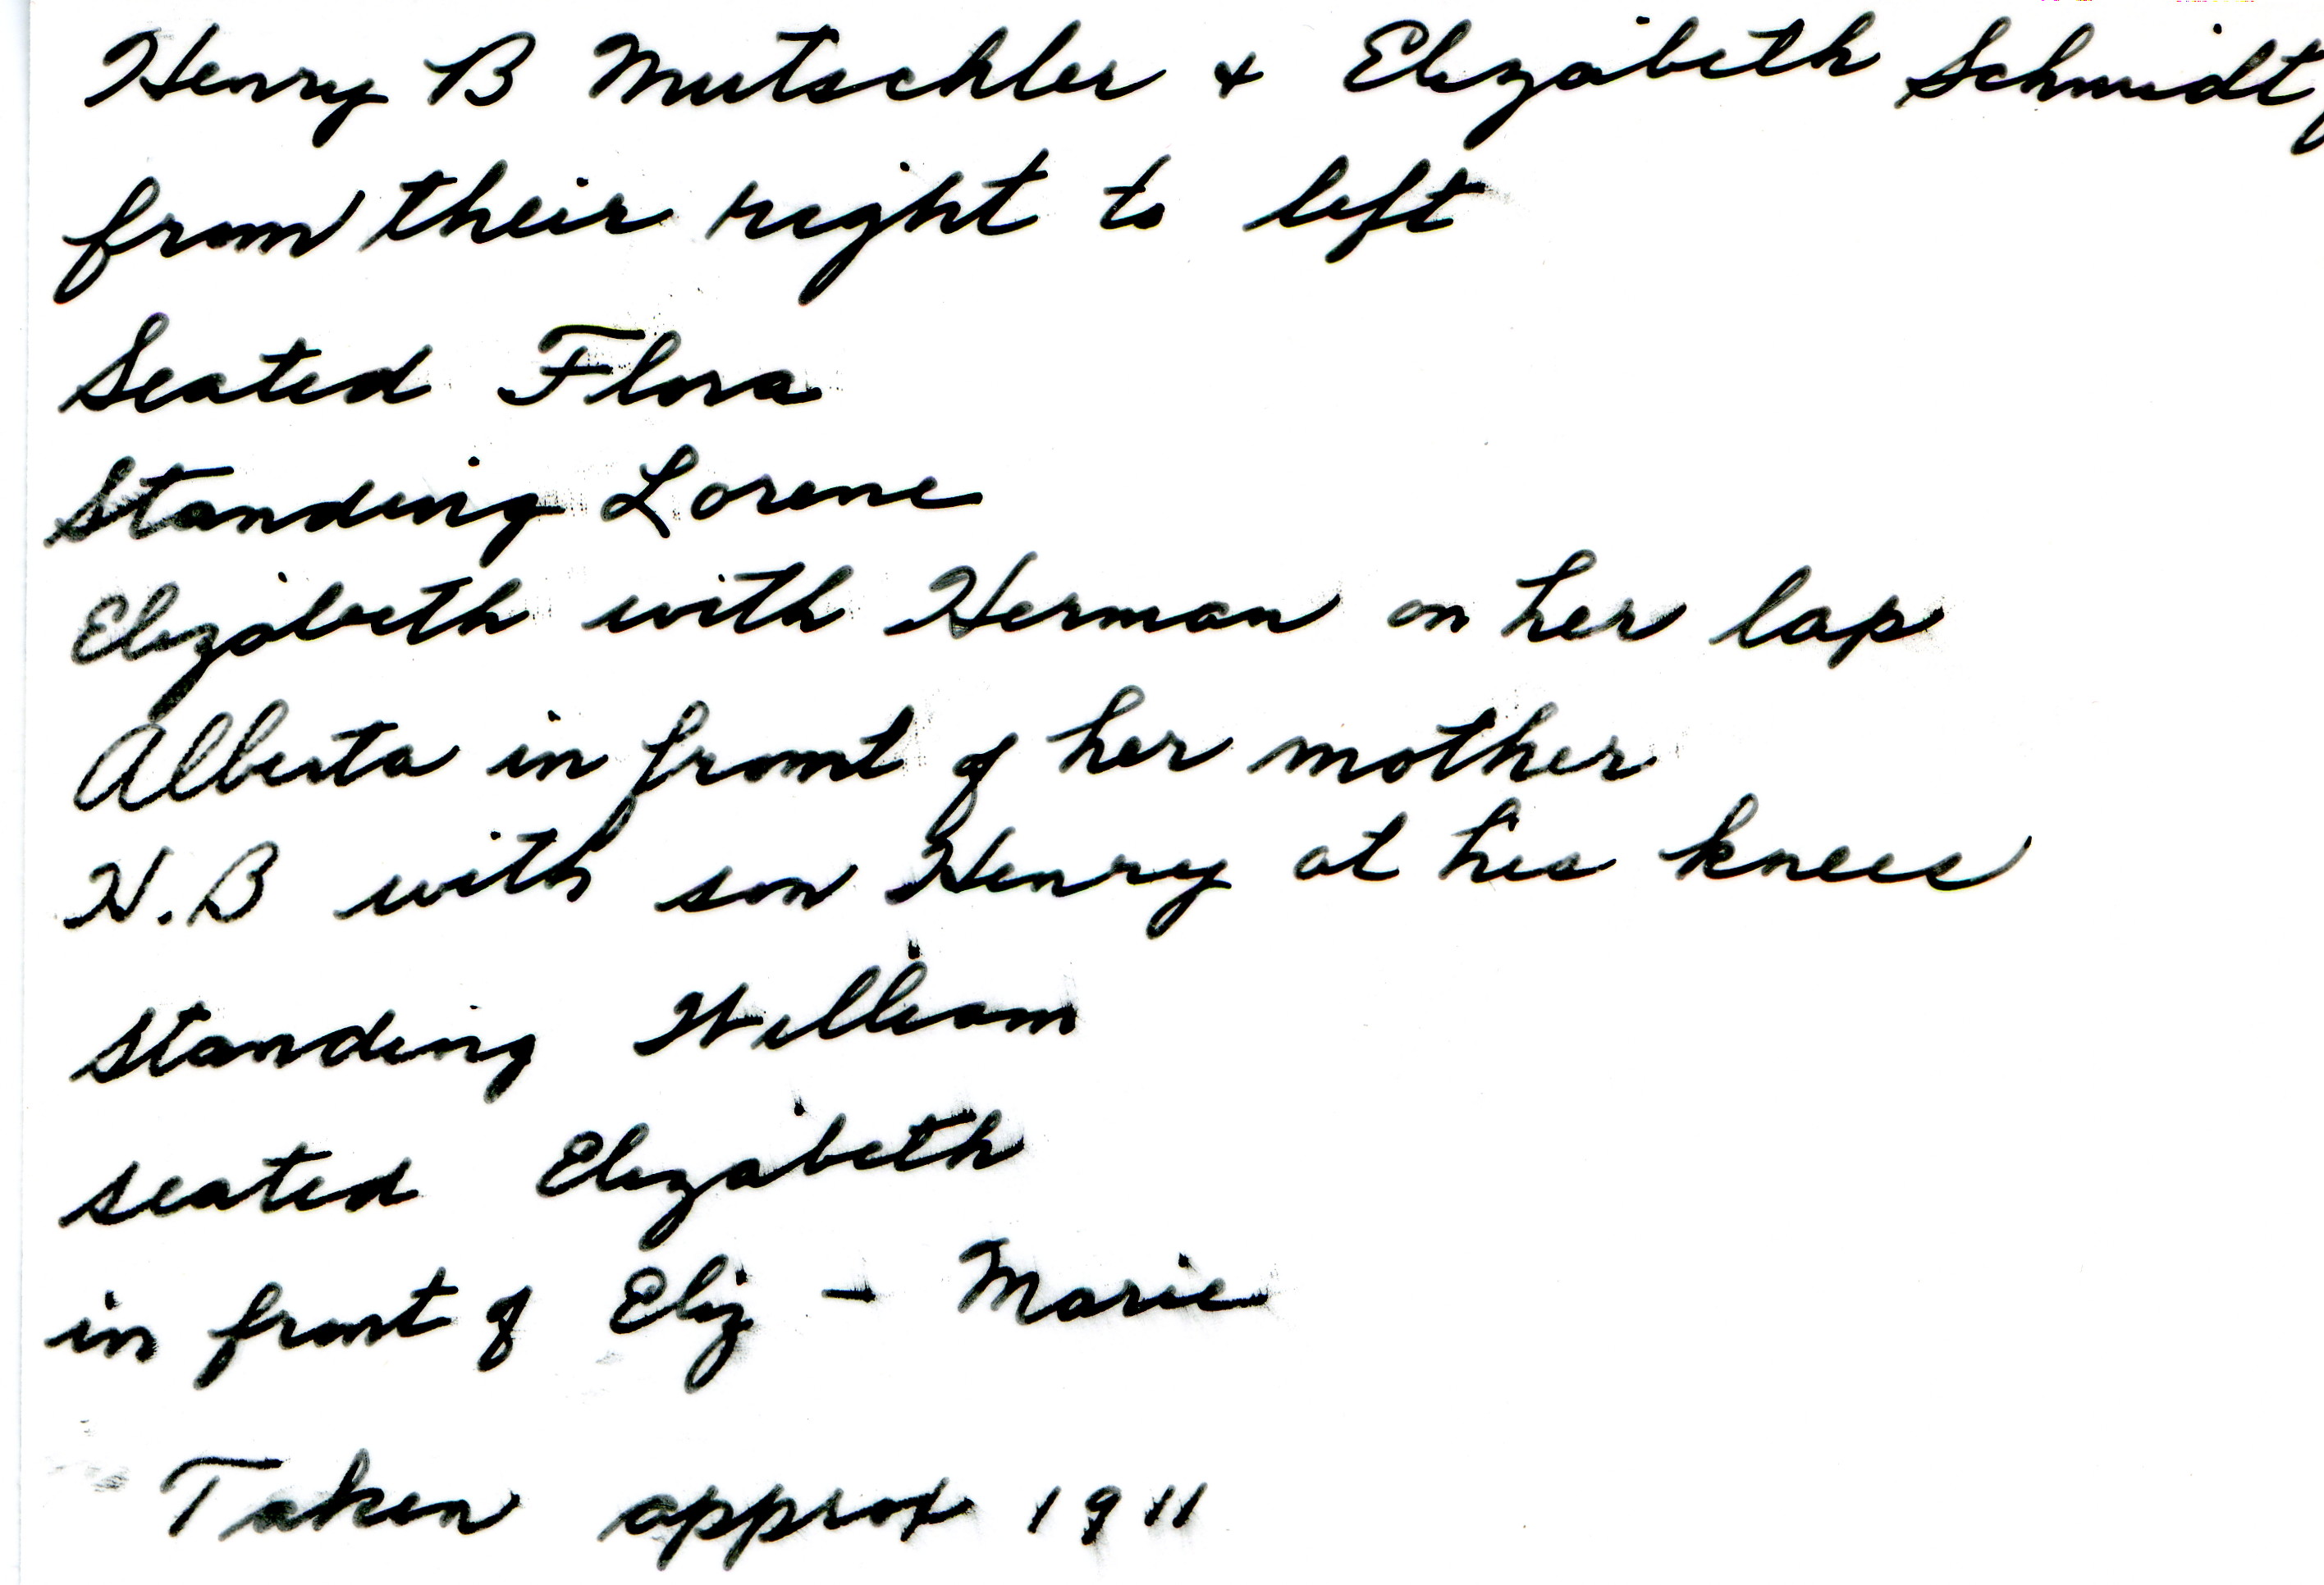 Henry B Mutschler & Elizabeth Schmidt
from their right to left
Seated Flora
Standing Lorene
Elizabeth with Herman on her lap
Alberta in front of her mother
H.B with son Henry at his knees
standing William
seated Elizabeth
in front of Eliz - Marie
Taken approx 1911